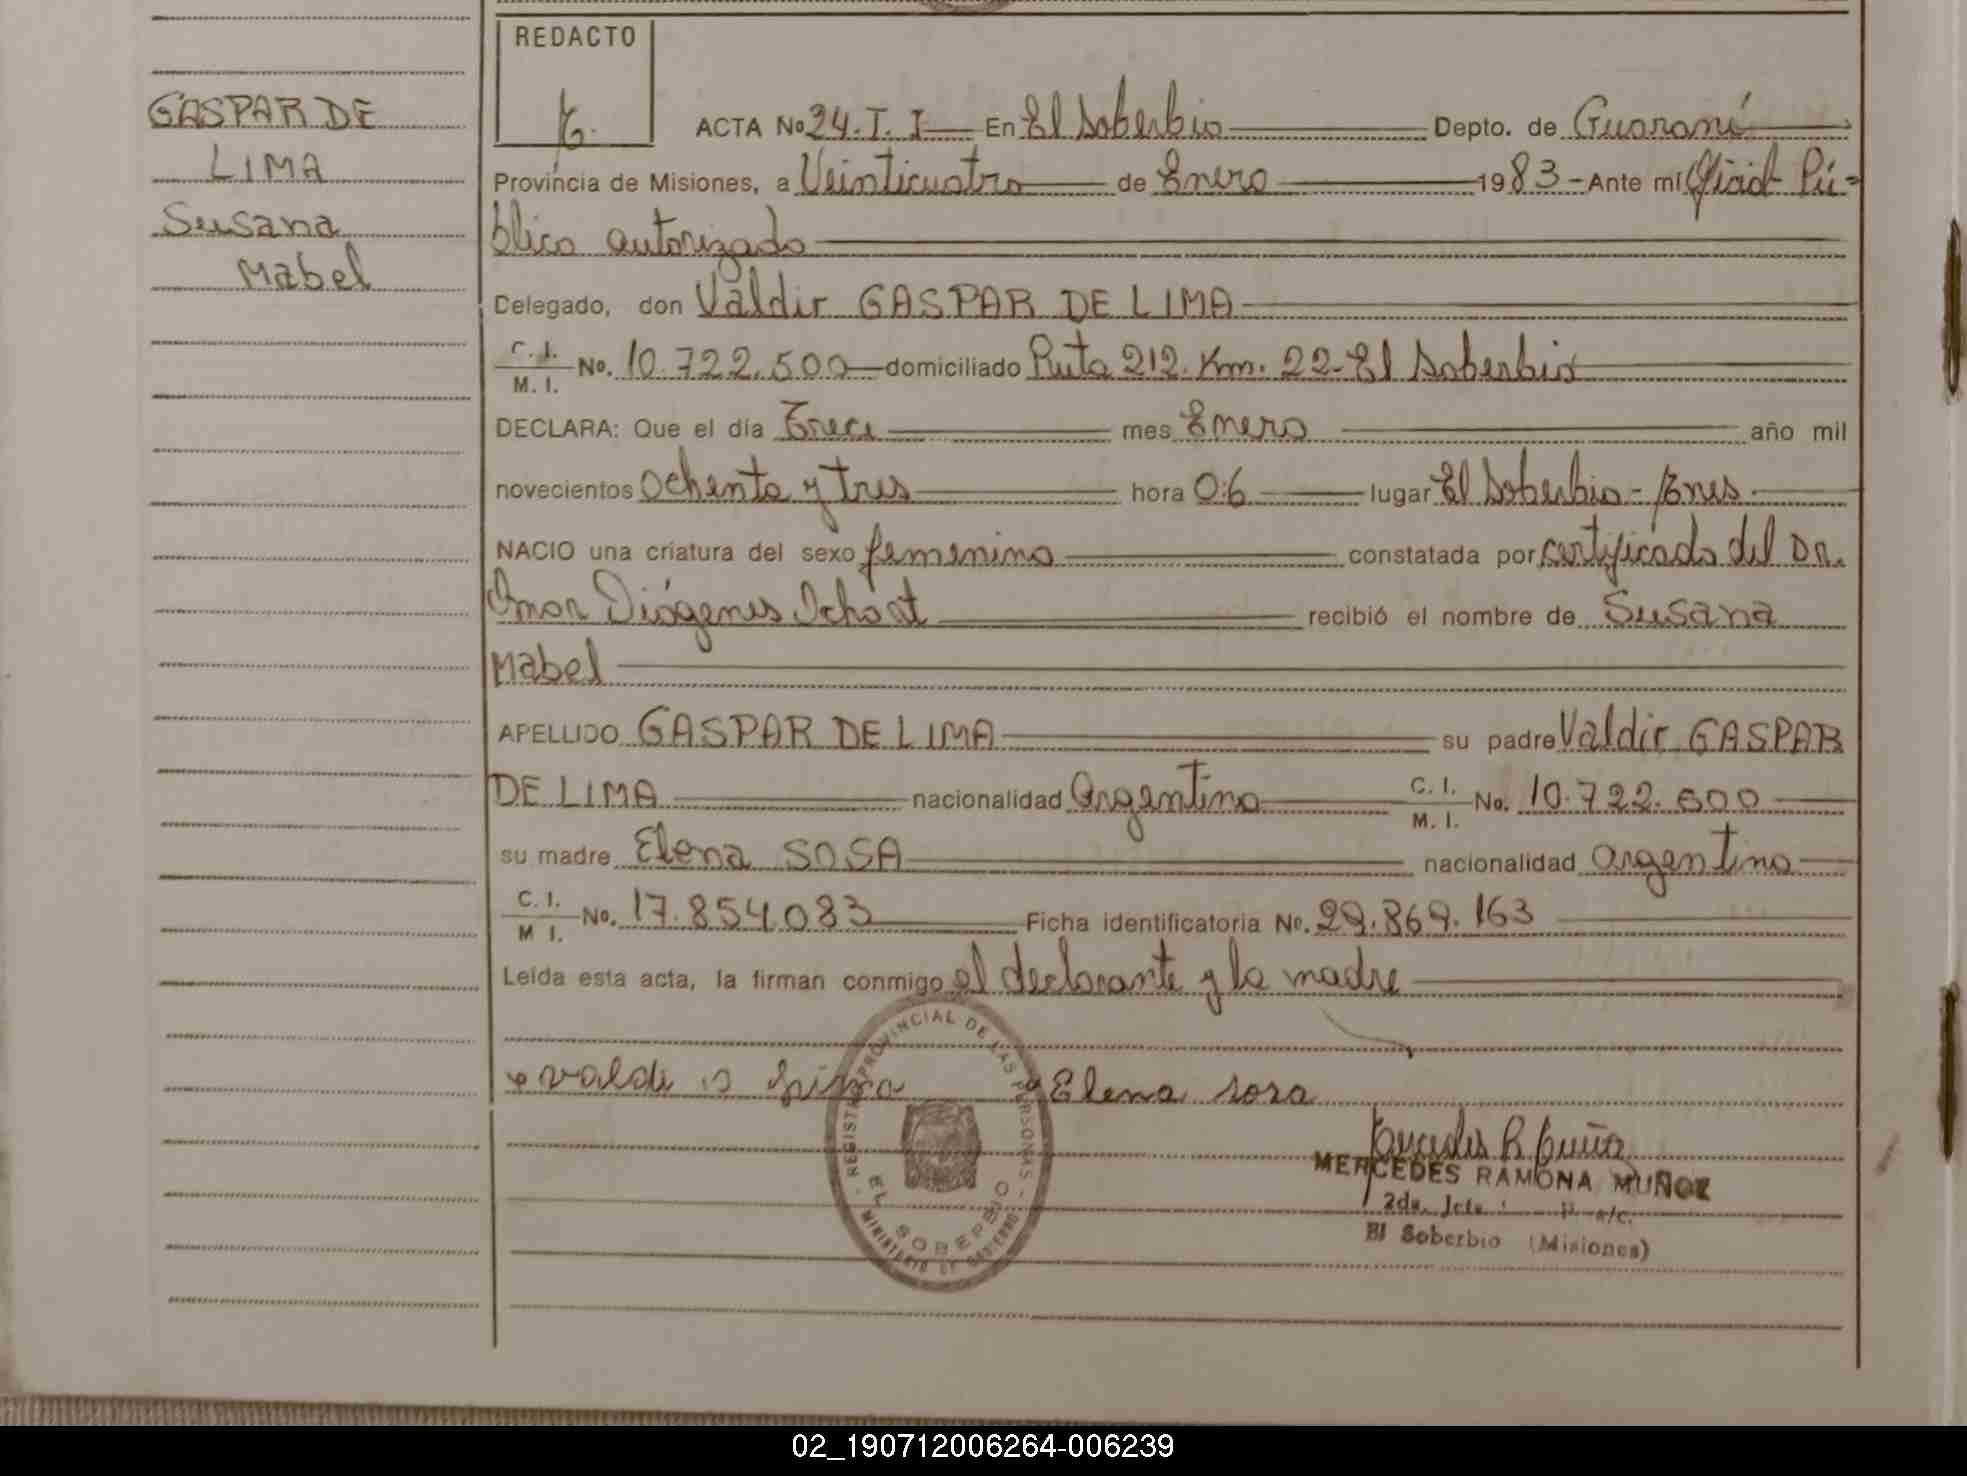 GASPAR DE
LIMA
Susana
Mabel
REDACTO
ACTA No 24.T.I En El Soberbio Depto. de Guaraní
Provincia de Misiones, a Veinticuatro de Enero 1983 - Ante mí Oficial Pú-
blico autorizado
Delegado, don Valdir GASPAR DE LIMA
C. I.
M. I. No. 10.722.500 domiciliado Ruta 212. Km. 22- El Soberbio
DECLARA: Que el día Trece mes Enero año mil
novecientos ochenta y tres hora 06 lugar El Soberbio -
NACIO una criatura del sexo femenino constatada por certificado del Dr.
Omar Diógenes recibió el nombre de Susana
Mabel
APELLIDO GASPAR DE LIMA su padre Valdir GASPAR
DE LIMA nacionalidad Argentina C. I.
M. I. No. 10.722.500
su madre Elena SOSA nacionalidad argentina
C. I.
M. I. No. 17.854.083 Ficha identificatoria No. 29.869.163
Leída esta acta, la firman conmigo el declarante y la madre
Elena sosa
REGISTRO PROVINCIAL DE LAS PERSONAS
EL SOBERBIO
MINISTERIO DE GOBIERNO
MERCEDES RAMONA MUÑOZ
2da. Jefe a/c.
El Soberbio (Misiones)
02_190712006264-006239